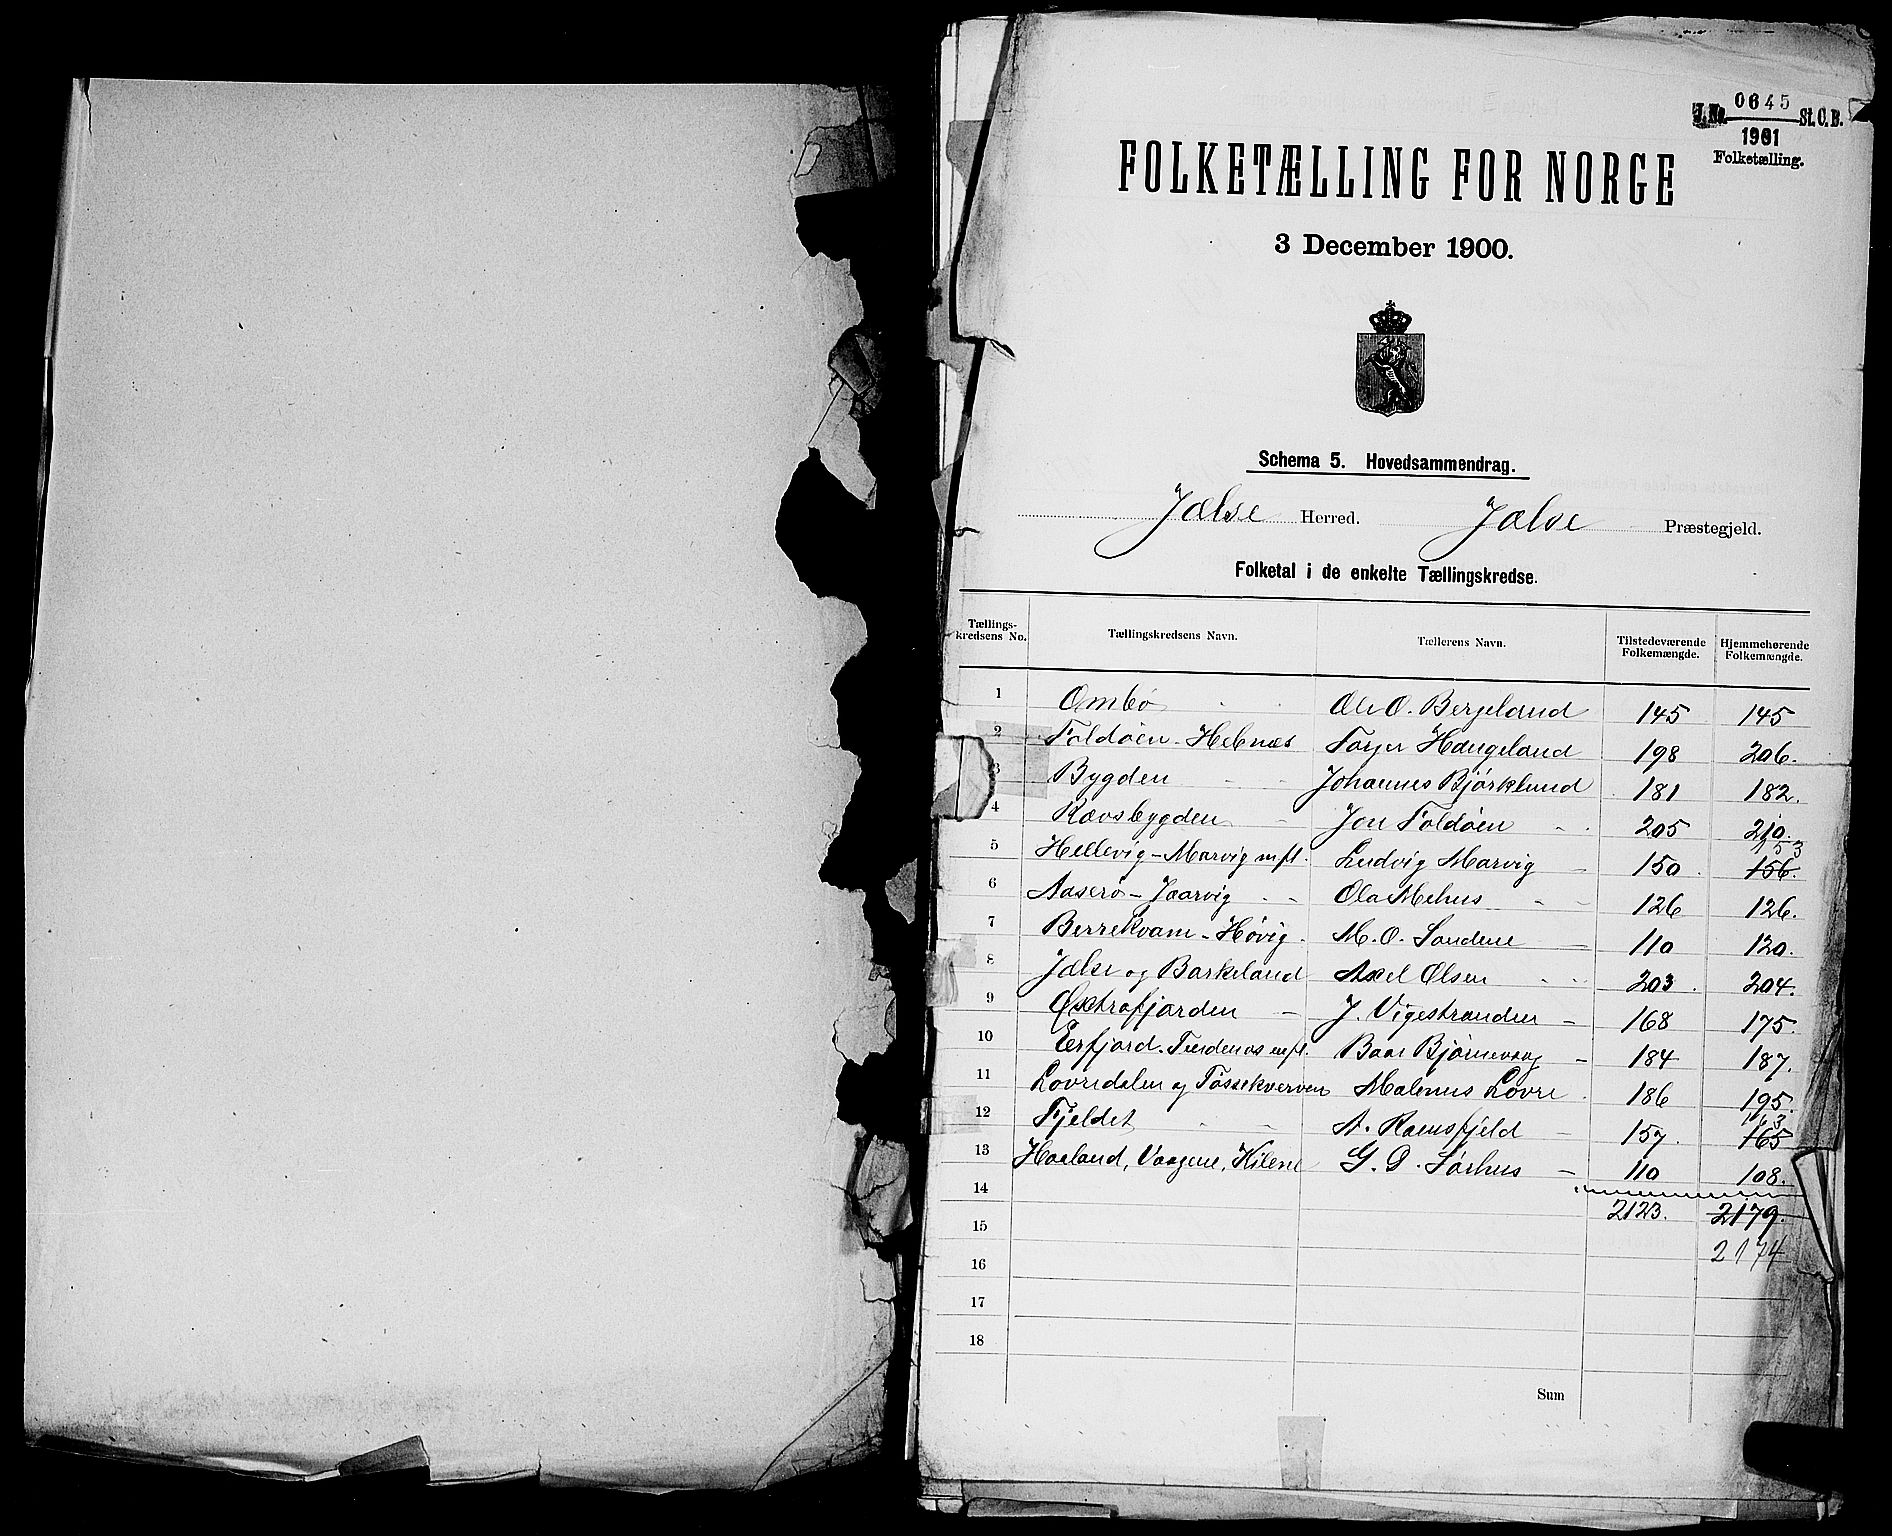 J. No. 0645 St. C. B.
1901
Folketælling.
FOLKETÆLLING FOR NORGE
3 December 1900.
Schema 5. Hovedsammendrag.
Jælse Herred. Jælse Præstegjeld.
Folketal i de enkelte Tællingskredse.
Tællings-kredsens No. Tællingskredsens Navn. Tællerens Navn. Tilstedeværende Folkemængde. Hjemmehørende Folkemængde.
1 Ombo Ole O. Bergeland 145 145
2 Foldøen - Hebnæs Torger Haugeland 198 206.
3 Bygden Johannes Bjørklund 181 182.
4 Rævsbygden Jon Foldøen 205 210.
5 Hellevig - Marvig mfl. Ludvig Marvig 150 156. 153
6 Aaserø - Jaarvig Ola Mehus 126 126.
7 Berrekvam - Høvig. M. O. Sandene 110 120.
8 Jælse og Barkeland Axel Olsen 203 204.
9 Østrafjorden J. Vigestranden 168 175.
10 Erfjord. Tindenæs mfl. Baar Bjørnevaag 184 187.
11 Lovredalen og Tøssekverven Malenus Lovre 186 195.
12 Fjeldet A. Ramsfjeld 157. 165 163
13 Haaland, Vaagene, Kilene G. D. Sørhus 110 108.
14
2123. 2179.
15
2174
16
17
18
Sum